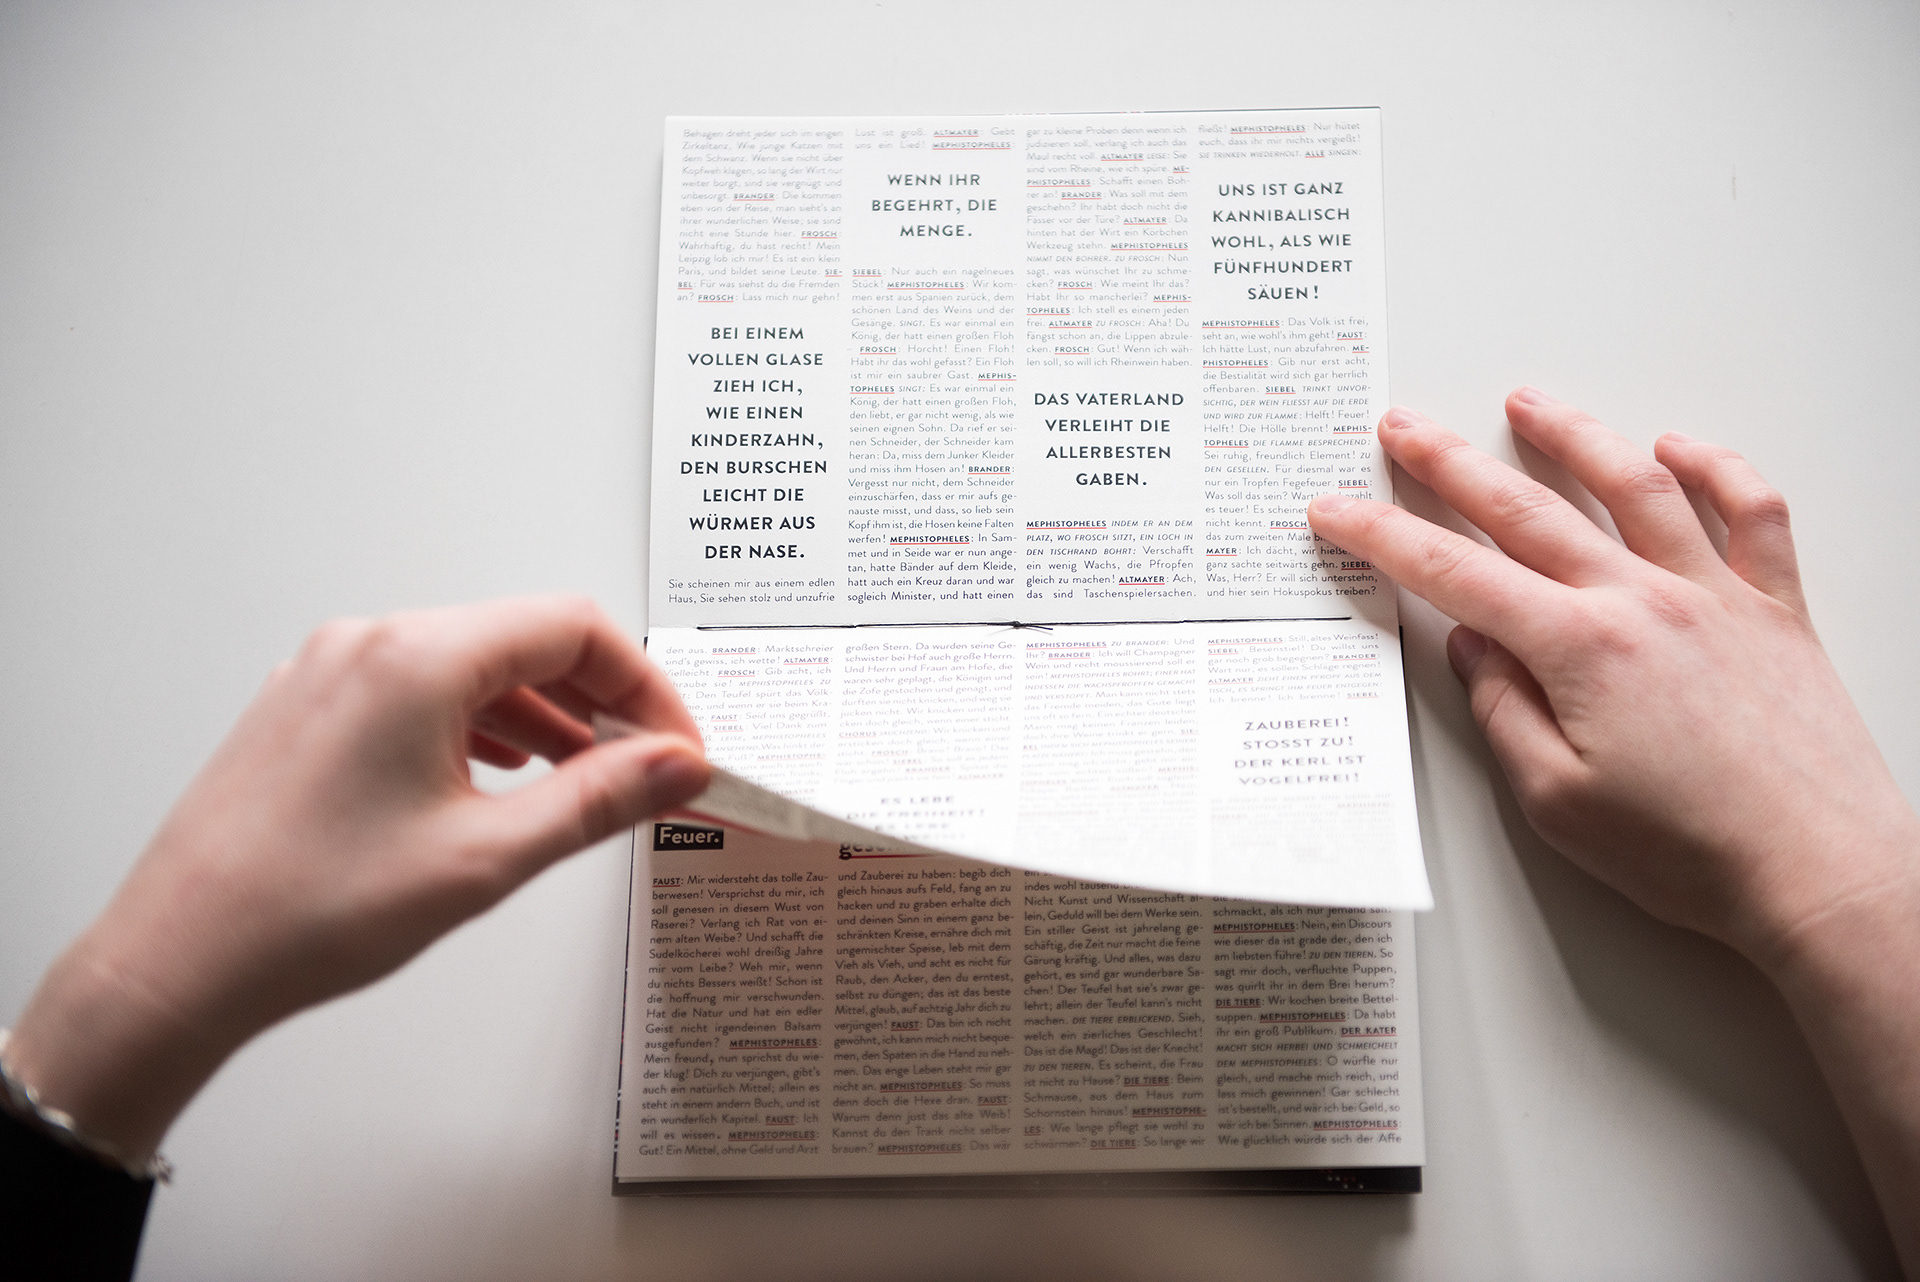 Behagen dreht jeder sich im engen
Zirkeltanz, Wie junge Katzen mit
dem Schwanz. Wenn sie nicht über
Kopfweh klagen, so lang der Wirt nur
weiter borgt, sind sie vergnügt und
unbesorgt. BRANDER: Die kommen
eben von der Reise, man sieht's an
ihrer wunderlichen Weise; sie sind
nicht eine Stunde hier. FROSCH:
Wahrhaftig, du hast recht! Mein
Leipzig lob ich mir! Es ist ein klein
Paris, und bildet seine Leute. SIE-
BEL: Für was siehst du die Fremden
an? FROSCH: Lass mich nur gehn!
BEI EINEM
VOLLEN GLASE
ZIEH ICH,
WIE EINEN
KINDERZAHN,
DEN BURSCHEN
LEICHT DIE
WÜRMER AUS
DER NASE.
Sie scheinen mir aus einem edlen
Haus, Sie sehen stolz und unzufrie
Lust ist groß. ALTMAYER: Gebt
uns ein Lied! MEPHISTOPHELES:
WENN IHR
BEGEHRT, DIE
MENGE.
SIEBEL: Nur auch ein nagelneues
Stück! MEPHISTOPHELES: Wir kom-
men erst aus Spanien zurück, dem
schönen Land des Weins und der
Gesänge. SINGT. Es war einmal ein
König, der hatt einen großen Floh
– FROSCH: Horcht! Einen Floh!
Habt ihr das wohl gefasst? Ein Floh
ist mir ein saubrer Gast. MEPHIS-
TOPHELES SINGT: Es war einmal ein
König, der hatt einen großen Floh,
den liebt, er gar nicht wenig, als wie
seinen eignen Sohn. Da rief er sei-
nen Schneider, der Schneider kam
heran: Da, miss dem Junker Kleider
und miss ihm Hosen an! BRANDER:
Vergesst nur nicht, dem Schneider
einzuschärfen, dass er mir aufs ge-
nauste misst, und dass, so lieb sein
Kopf ihm ist, die Hosen keine Falten
werfen! MEPHISTOPHELES: In Sam-
met und in Seide war er nun ange-
tan, hatte Bänder auf dem Kleide,
hatt auch ein Kreuz daran und war
sogleich Minister, und hatt einen
gar zu kleine Proben denn wenn ich
judizieren soll, verlang ich auch das
Maul recht voll. ALTMAYER LEISE: Sie
sind vom Rheine, wie ich spüre. ME-
PHISTOPHELES: Schafft einen Boh-
rer an! BRANDER: Was soll mit dem
geschehn? Ihr habt doch nicht die
Fässer vor der Türe? ALTMAYER: Da
hinten hat der Wirt ein Körbchen
Werkzeug stehn. MEPHISTOPHELES
NIMMT DEN BOHRER. ZU FROSCH: Nun
sagt, was wünschet Ihr zu schme-
cken? FROSCH: Wie meint Ihr das?
Habt Ihr so mancherlei? MEPHIS-
TOPHELES: Ich stell es einem jeden
frei. ALTMAYER ZU FROSCH: Aha! Du
fängst schon an, die Lippen abzule-
cken. FROSCH: Gut! Wenn ich wäh-
len soll, so will ich Rheinwein haben.
DAS VATERLAND
VERLEIHT DIE
ALLERBESTEN
GABEN.
MEPHISTOPHELES INDEM ER AN DEM
PLATZ, WO FROSCH SITZT, EIN LOCH IN
DEN TISCHRAND BOHRT: Verschafft
ein wenig Wachs, die Pfropfen
gleich zu machen! ALTMAYER: Ach,
das sind Taschenspielersachen.
fließt! MEPHISTOPHELES: Nur hütet
euch, dass ihr mir nichts vergießt!
SIE TRINKEN WIEDERHOLT. ALLE SINGEN:
UNS IST GANZ
KANNIBALISCH
WOHL, ALS WIE
FÜNFHUNDERT
SÄUEN!
MEPHISTOPHELES: Das Volk ist frei,
seht an, wie wohl's ihm geht! FAUST:
Ich hätte Lust, nun abzufahren. ME-
PHISTOPHELES: Gib nur erst acht,
die Bestialität wird sich gar herrlich
offenbaren. SIEBEL TRINKT UNVOR-
SICHTIG, DER WEIN FLIESST AUF DIE ERDE
UND WIRD ZUR FLAMME: Helft! Feuer!
Helft! Die Hölle brennt! MEPHIS-
TOPHELES DIE FLAMME BESPRECHEND:
Sei ruhig, freundlich Element! ZU
DEN GESELLEN. Für diesmal war es
nur ein Tropfen Fegefeuer. SIEBEL:
Was soll das sein? Wart
es teuer! Es scheinet
nicht kennt. FROSCH
das zum zweiten Male
MAYER: Ich dächt, wir hieße
ganz sachte seitwärts gehn. SIEBEL:
Was, Herr? Er will sich unterstehn,
und hier sein Hokuspokus treiben?
den aus. BRANDER: Marktschreier
sind's gewiss, ich wette! ALTMAYER:
Vielleicht. FROSCH: Gib acht, ich
schraube sie! MEPHISTOPHELES ZU
Den Teufel spürt das Völk-
nie, und wenn er sie beim Kra-
FAUST: Seid uns gegrüßt,
SIEBEL: Viel Dank zum
großen Stern. Da wurden seine Ge-
schwister bei Hof auch große Herrn.
Und Herrn und Fraun am Hofe, die
waren sehr geplagt, die Königin und
die Zofe gestochen und genagt, und
durften sie nicht knicken, und weg sie
jucken nicht. Wir knicken und ersti-
cken doch gleich, wenn einer sticht.
CHORUS JAUCHZEND: Wir knicken und
ersticken doch gleich, wenn einer
sticht. FROSCH: Bravo! Bravo! Das
war schön! SIEBEL: So soll es jedem
Floh ergehn! BRANDER
ES LEBE
DIE FREIHEIT!
ES LEBE
MEPHISTOPHELES ZU BRANDER: Und
Ihr? BRANDER: Ich will Champagner
Wein und recht moussierend soll er
sein! MEPHISTOPHELES BOHRT; EINER HAT
INDESSEN DIE WACHSPFROPFEN GEMACHT
UND VERSTOPFT. Man kann nicht stets
das Fremde meiden, das Gute liegt
uns oft so fern. Ein echter deutscher
Mann mag keinen Franzen leiden,
doch ihre Weine trinkt er gern. SIE-
MEPHISTOPHELES: Still, altes Weinfass!
SIEBEL: Besenstiel! Du willst uns
gar noch grob begegnen? BRANDER:
Wart nur, es sollen Schläge regnen!
ALTMAYER ZIEHT EINEN PFROPF AUS DEM
TISCH, ES SPRINGT IHM FEUER ENTGEGEN:
Ich brenne! Ich brenne! SIEBEL
ZAUBEREI!
STOSST ZU!
DER KERL IST
VOGELFREI!
Feuer.
FAUST: Mir widersteht das tolle Zau-
berwesen! Versprichst du mir, ich
soll genesen in diesem Wust von
Raserei? Verlang ich Rat von ei-
nem alten Weibe? Und schafft die
Sudelköcherei wohl dreißig Jahre
mir vom Leibe? Weh mir, wenn
du nichts Bessers weißt! Schon ist
die hoffnung mir verschwunden.
Hat die Natur und hat ein edler
Geist nicht irgendeinen Balsam
ausgefunden? MEPHISTOPHELES:
Mein freund, nun sprichst du wie-
der klug! Dich zu verjüngen, gibt's
auch ein natürlich Mittel; allein es
steht in einem andern Buch, und ist
ein wunderlich Kapitel. FAUST: Ich
will es wissen. MEPHISTOPHELES:
Gut! Ein Mittel, ohne Geld und Arzt
und Zauberei zu haben: begib dich
gleich hinaus aufs Feld, fang an zu
hacken und zu graben erhalte dich
und deinen Sinn in einem ganz be-
schränkten Kreise, ernähre dich mit
ungemischter Speise, leb mit dem
Vieh als Vieh, und acht es nicht für
Raub, den Acker, den du erntest,
selbst zu düngen; das ist das beste
Mittel, glaub, auf achtzig Jahr dich zu
verjüngen! FAUST: Das bin ich nicht
gewöhnt, ich kann mich nicht beque-
men, den Spaten in die Hand zu neh-
men. Das enge Leben steht mir gar
nicht an. MEPHISTOPHELES: So muss
denn doch die Hexe dran. FAUST:
Warum denn just das alte Weib!
Kannst du den Trank nicht selber
brauen? MEPHISTOPHELES: Das wär
indes wohl tausend
Nicht Kunst und Wissenschaft al-
lein, Geduld will bei dem Werke sein.
Ein stiller Geist ist jahrelang ge-
schäftig, die Zeit nur macht die feine
Gärung kräftig. Und alles, was dazu
gehört, es sind gar wunderbare Sa-
chen! Der Teufel hat sie's zwar ge-
lehrt; allein der Teufel kann's nicht
machen. DIE TIERE ERBLICKEND. Sieh,
welch ein zierliches Geschlecht!
Das ist die Magd! Das ist der Knecht!
ZU DEN TIEREN. Es scheint, die Frau
ist nicht zu Hause? DIE TIERE: Beim
Schmause, aus dem Haus zum
Schornstein hinaus! MEPHISTOPHE-
LES: Wie lange pflegt sie wohl zu
schwärmen? DIE TIERE: So lange wir
schmackt, als ich nur jemand sah!
MEPHISTOPHELES: Nein, ein Discours
wie dieser da ist grade der, den ich
am liebsten führe! ZU DEN TIEREN. So
sagt mir doch, verfluchte Puppen,
was quirlt ihr in dem Brei herum?
DIE TIERE: Wir kochen breite Bettel-
suppen. MEPHISTOPHELES: Da habt
ihr ein groß Publikum. DER KATER
MACHT SICH HERBEI UND SCHMEICHELT
DEM MEPHISTOPHELES: O würfle nur
gleich, und mache mich reich, und
lass mich gewinnen! Gar schlecht
ist's bestellt, und wär ich bei Geld, so
wär ich bei Sinnen. MEPHISTOPHELES:
Wie glücklich würde sich der Affe